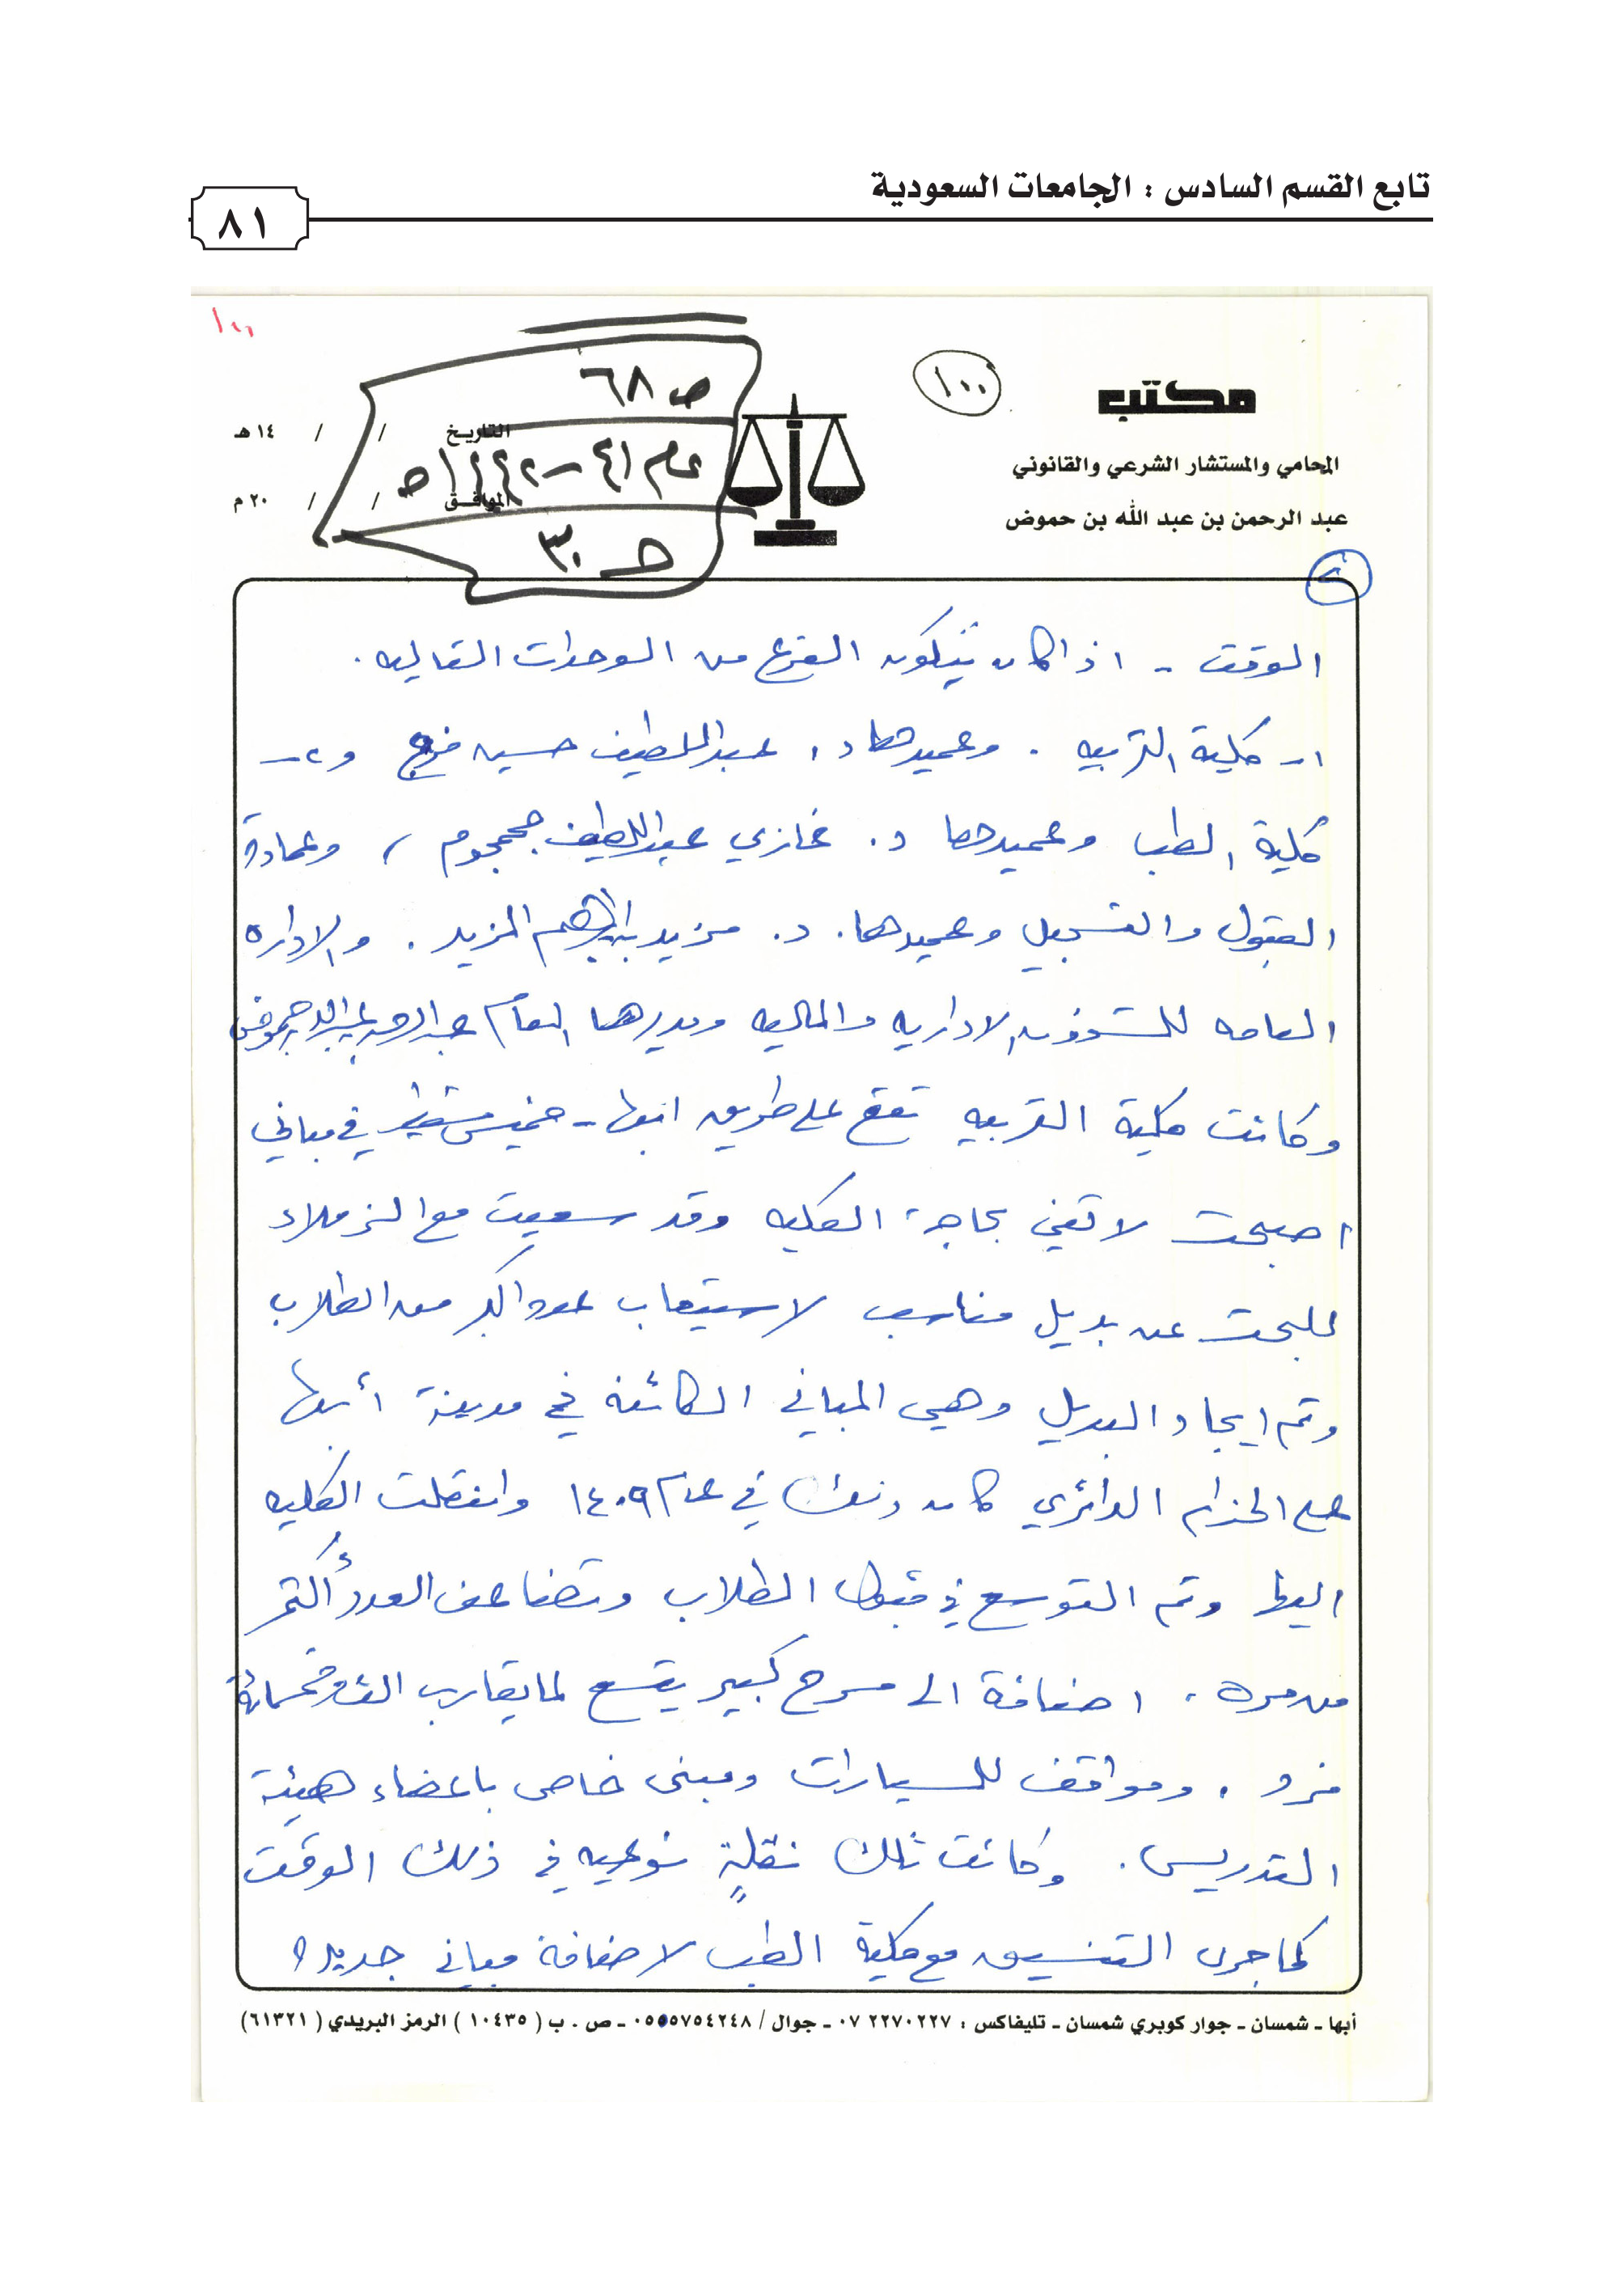 تابع القسم السادس : الجامعات السعودية
٨١
١٠٠
ص ٦٨
عام ٤١-١٤٤٢هـ
حـ ٣٠
١٠٠
مكتب
المحامي والمستشار الشرعي والقانوني
عبد الرحمن بن عبد الله بن حموض
التاريخ / / ١٤ هـ
الموافق / / ٢٠ م
٢
الوقت - اذ كان يتكون الفرع من الوحدات التاليه .
١- كلية التربيه . وعميدها د. عبداللطيف حسين فرج و٢-
كلية الطب وعميدها د. غازي عبداللطيف جمجوم ، وعمادة
القبول والتسجيل وعميدها. د. مزيد ابراهيم المزيد . والاداره
العامه للشؤون الاداريه والماليه ومديرها العام عبدالرحمن عبدالله حموض
وكانت كلية التربيه تقع على طريق ابها - خميس مشيط في مباني
اصبحت لا تفي بحاجة الكليه وقد سعيت مع الزملاء
للبحث عن بديل مناسب لاستيعاب عدد اكبر من الطلاب
وتم ايجاد البديل وهي المباني الكائنه في مدينة أبها
على الحزام الدائري كان ذلك في عام ١٤٠٩ وانتقلت الكليه
اليها وتم التوسع في قبول الطلاب وتضاعف العدد أكثر
من مره . اضافة الى مسرح كبير يتسع لما يقارب الف وخمسمائة
فرد . ومواقف للسيارات ومبنى خاص باعضاء هيئة
التدريس . وكانت تلك نقلةٍ نوعيه في ذلك الوقت
كما جرى التنسيق مع كلية الطب لاضافة مباني جديده
أبها - شمسان - جوار كوبري شمسان - تليفاكس : ٢٢٧٠٢٢٧ ٠٧ - جوال / ٠٥٥٥٧٥٤٢٤٨ - ص . ب ( ١٠٤٣٥ ) الرمز البريدي ( ٦١٣٢١ )